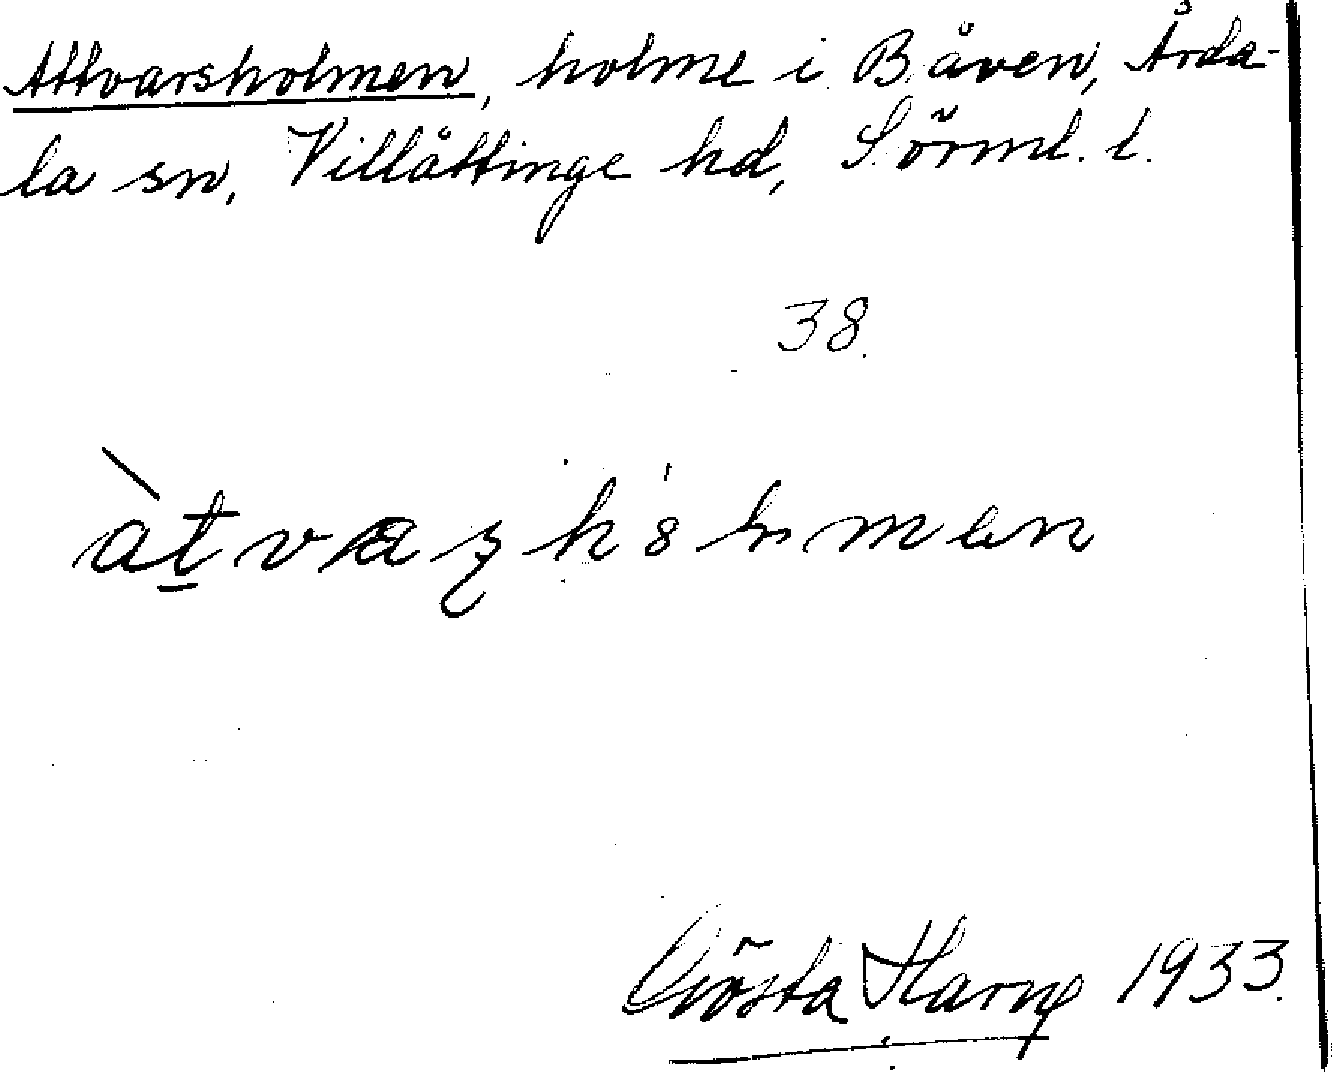 Attvarsholmen, holme i Båven, Årda-
la sn, Villåttinge hd, Sörml. l.
38.
Gösta Harng 1933.